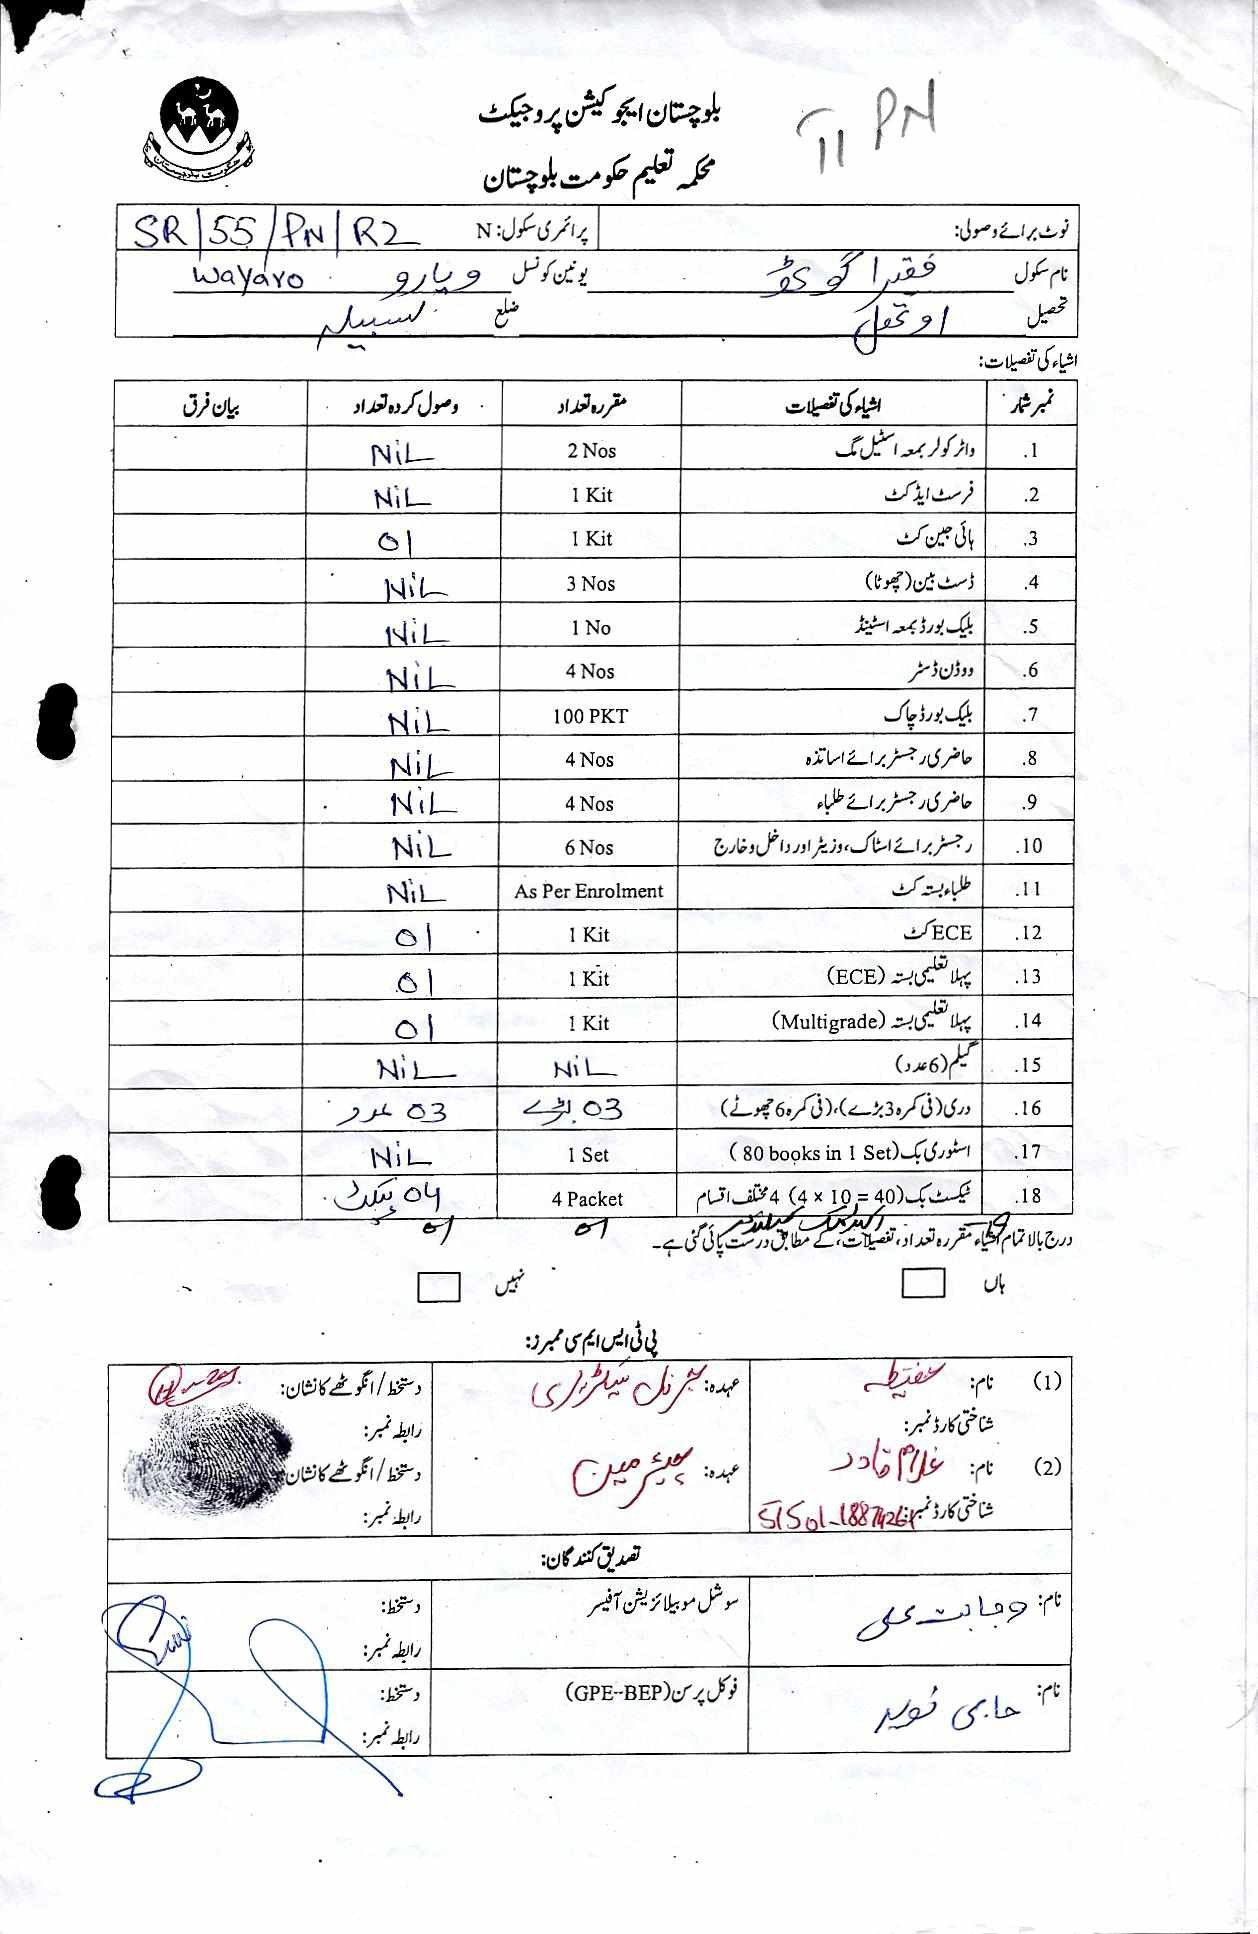 11 PN
بلوچستان ایجوکیشن پروجیکٹ
محکمہ تعلیم حکومت بلوچستان
حکومت بلوچستان
نوٹ برائے وصولی: پرائمری سکول: N SR/55/PN/R2
نام سکول فقیرا گوٹھ یونین کونسل ویارو Wayaro
تحصیل اوتھل ضلع لسبیلہ
اشیاء کی تفصیلات:
نمبر شمار اشیاء کی تفصیلات مقررہ تعداد وصول کردہ تعداد بیان فرق
1. واٹر کولر بمعہ اسٹیل مگ 2 Nos NiL
2. فرسٹ ایڈ کٹ 1 Kit NiL
3. ہائی جین کٹ 1 Kit 01
4. ڈسٹ بین (چھوٹا) 3 Nos NiL
5. بلیک بورڈ بمعہ اسٹینڈ 1 No NiL
6. ووڈن ڈسٹر 4 Nos NiL
7. بلیک بورڈ چاک 100 PKT NiL
8. حاضری رجسٹر برائے اساتذہ 4 Nos NiL
9. حاضری رجسٹر برائے طلباء 4 Nos NiL
10. رجسٹر برائے اسٹاک، وزیٹر اور داخل و خارج 6 Nos NiL
11. طلباء بستہ کٹ As Per Enrolment NiL
12. ECE کٹ 1 Kit 01
13. پہلا تعلیمی بستہ (ECE) 1 Kit 01
14. پہلا تعلیمی بستہ (Multigrade) 1 Kit 01
15. گیلم (6 عدد) NiL NiL
16. دری (فی کمرہ 3 بڑے)، (فی کمرہ 6 چھوٹے) 03 بڑے 03 عدد
17. اسٹوری بک (80 books in 1 Set) 1 Set NiL
18. ٹیکسٹ بک (4 × 10 = 40) 4 مختلف اقسام 4 Packet 04 پیکٹ
19 01 01
درج بالا تمام اشیاء مقررہ تعداد، تفصیلات کے مطابق درست پائی گئی ہے۔
ہاں نہیں
پی ٹی ایس ایم سی ممبرز:
(1) نام: حفیظہ عہدہ: جنرل سیکٹریری دستخط / انگوٹھے کا نشان:
شناختی کارڈ نمبر: رابطہ نمبر:
(2) نام: غلام قادر عہدہ: چیئرمین دستخط / انگوٹھے کا نشان:
شناختی کارڈ نمبر: رابطہ نمبر:
تصدیق کنندگان:
نام: وجاہت علی سوشل موبیلائزیشن آفیسر دستخط:
رابطہ نمبر:
نام: حاجی نوید فوکل پرسن (GPE-BEP) دستخط:
رابطہ نمبر: